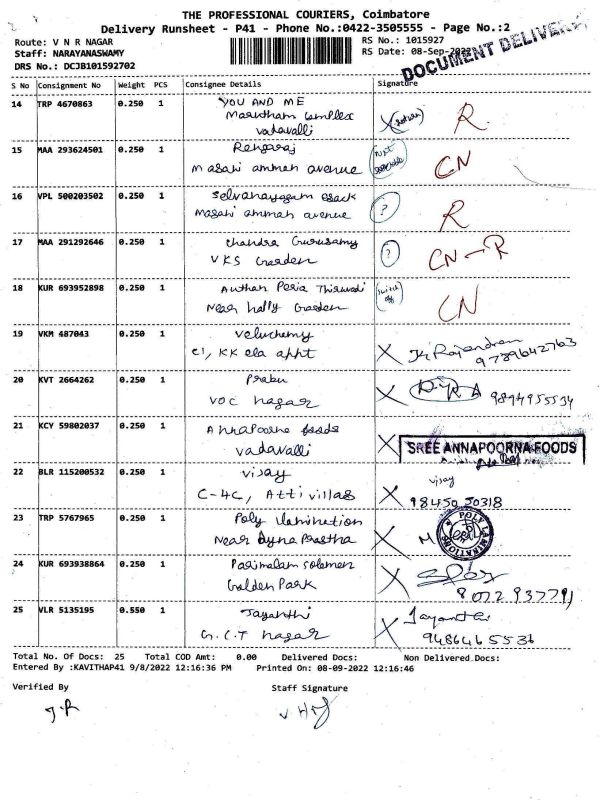 THE PROFESSIONAL COURIERS, Coimbatore
Delivery Runsheet - P41 - Phone No.:0422-3505555 - Page No.:2
Route: V N R NAGAR RS No.: 1015927
Staff: NARAYANASWAMY RS Date: 08-Sep-2022
DRS No.: DCJB101592702
DOCUMENT DELIVER
S No Consignment No Weight PCS Consignee Details Signature
14 TRP 4670863 0.250 1 YOU AND ME
Marutham Complex
vadavalli
R
15 MAA 293624501 0.250 1 Rengaraj
masani amman avenue
CN
16 VPL 500203502 0.250 1 Selvanayagam
masani amman avenue
? R
17 MAA 291292646 0.250 1 chandra Gurusamy
VKS Garden
? CN-R
18 KUR 693952898 0.250 1
Near Garden
switch off CN
19 VKM 487043 0.250 1
C1, KK ela appt
X Rajendran
9789642763
20 KVT 2664262 0.250 1 Prabu
VOC nagar
X 9894955534
21 KCY 59802037 0.250 1 Annapoorna foods
vadavalli
X SREE ANNAPOORNA FOODS
22 BLR 115200532 0.250 1 vijay
C-4C, Atti villas
X vijay
98450 50318
23 TRP 5767965 0.250 1 Poly lamination
Near
X POLY LAMINATIONS
24 KUR 693938864 0.250 1 Parimalam solomon
Golden Park
X
25 VLR 5135195 0.550 1 Jayanthi
G.C.T nagar
X Jayanthi
9486465536
Total No. Of Docs: 25 Total COD Amt: 0.00 Delivered Docs: Non Delivered Docs:
Entered By :KAVITHAP41 9/8/2022 12:16:36 PM Printed On: 08-09-2022 12:16:46
Verified By Staff Signature